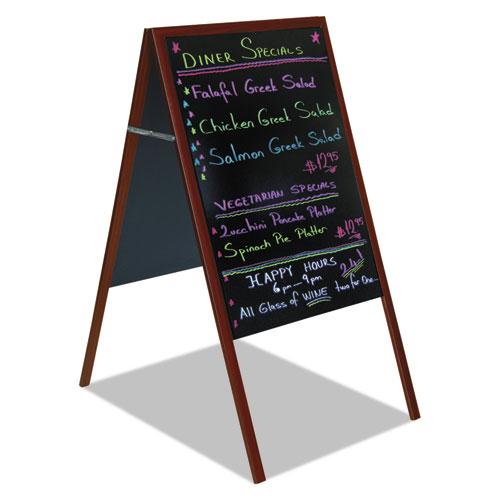 DINER SPECIALS
Falafal Greek Salad
Chicken Greek Salad
Salmon Greek Salad
$12.95
VEGETARIAN SPECIALS
Zucchini Pancake Platter
Spinach Pie Platter $12.95
HAPPY HOURS 2 4 1
6 pm - 9 pm
All Glass of WINE two for One...